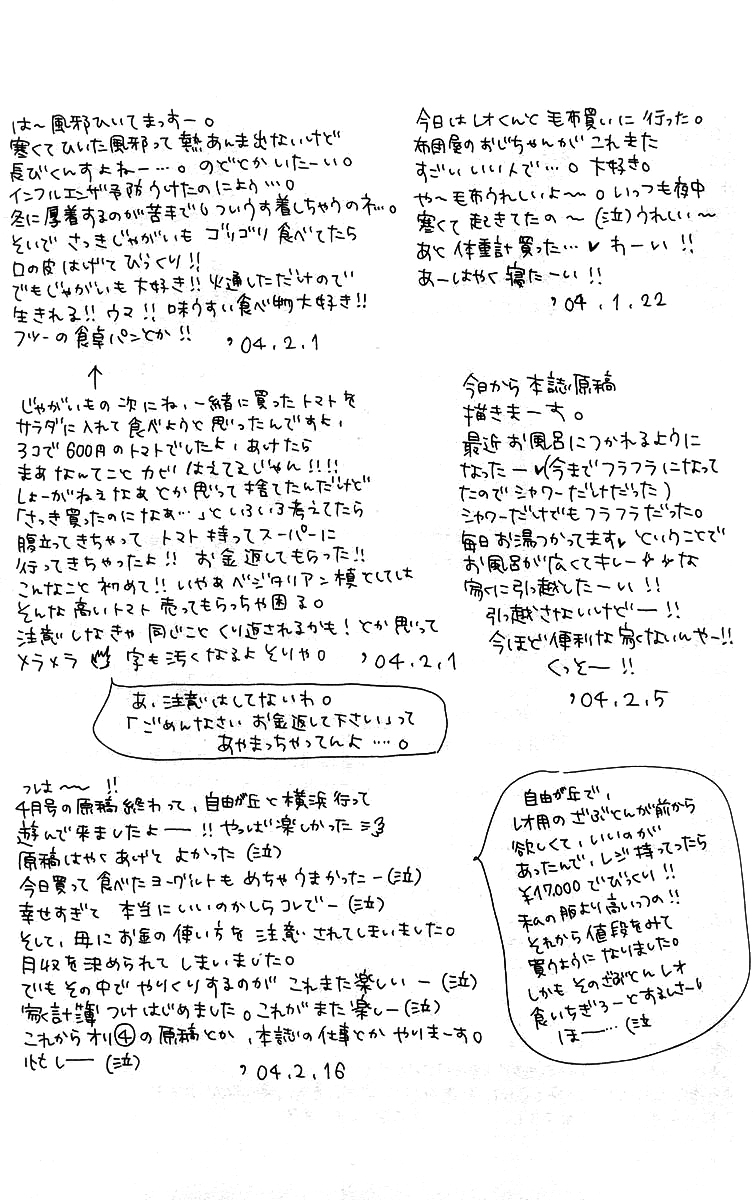 今日はレオくんと毛布買いに行った。
布団屋のおじちゃんがこれまた
すごいいい人で…。大好き。
や〜毛布うれしいよ〜。いつも夜中
寒くて起きてたの〜(泣)うれしい〜
あと体重計買った…♥わーい!!
あーはやく寝たーい!!
'04.1.22
は〜風邪ひいてまっすー。
寒くてひいた風邪って熱あんま出ないけど
長びくんすよねー…。のどとかいたーい。
インフルエンザ予防うけたのによう…。
冬に厚着するのが苦手でついうす着しちゃうのネ…。
そいでさっきじゃがいもゴリゴリ食べてたら
口の皮はげてびっくり!!
でもじゃがいも大好き!!火通しただけので
生きれる!!ウマ!!味うすい食べ物大好き!!
フツーの食卓パンとか!!
'04.2.1
↑
じゃがいもの次にね、一緒に買ったトマトを
サラダに入れて食べようと思ったんですよ、
3コで600円のトマトでしたよ、あけたら
まあなんてことカビはえてるじゃん!!!!
しょーがねえなあとか思って捨てたんだけど
「さっき買ったのになあ…」といろいろ考えてたら
腹立ってきちゃってトマト持ってスーパーに
行ってきちゃったよ!!お金返してもらった!!
こんなこと初めて!!いやあベジタリアン槙としては
そんな高いトマト売ってもらっちゃ困る。
注意しなきゃ同じことくり返されるかも!とか思って
メラメラ 字も汚くなるよそりゃ。 '04.2.1
あ、注意はしてないわ。
「ごめんなさいお金返して下さい」って
あやまっちゃってんよ…。
今日から本誌原稿
描きまーす。
最近お風呂につかれるように
なったー♥(今までフラフラになって
たのでシャワーだけだった)
シャワーだけでもフラフラだった。
毎日お湯つかってます♥ということで
お風呂が広くてキレーな
家に引越したーい!!
引越さないけどー!!
今ほど便利な家ないんやー!!
くっそー!!
'04.2.5
っは〜〜!!
4月号の原稿終わって、自由が丘と横浜行って
遊んで来ましたよー!!やっぱ楽しかった
原稿はやくあげてよかった(泣)
今日買って食べたヨーグルトもめちゃうまかったー(泣)
幸せすぎて本当にいいのかしらコレでー(泣)
そして、母にお金の使い方を注意されてしまいました。
月収を決められてしまいました。
でもその中でやりくりするのがこれまた楽しいー(泣)
家計簿つけはじめました。これがまた楽しー(泣)
これからオリ④の原稿とか、本誌の仕事とかやりまーす。
忙しー(泣)
'04.2.16
自由が丘で、
レオ用のざぶとんが前から
欲しくて、いいのが
あったんで、レジ持ってったら
¥17,000でびっくり!!
私の服より高いっつの!!
それから値段をみて
買うようになりました。
しかもそのざぶとんレオ
食いちぎろーとするしさー!
ほー…(泣